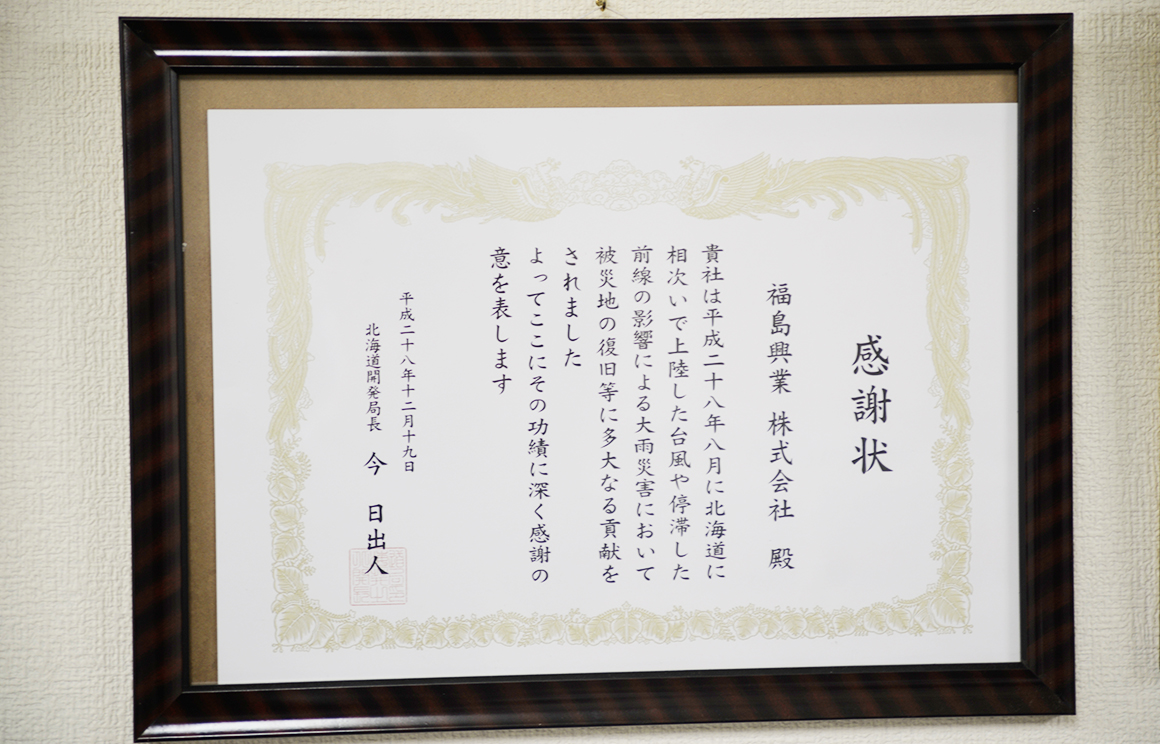 感謝状
福島興業 株式会社 殿
貴社は平成二十八年八月に北海道に
相次いで上陸した台風や停滞した
前線の影響による大雨災害において
被災地の復旧等に多大なる貢献を
されました
よってここにその功績に深く感謝の
意を表します
平成二十八年十二月十九日
北海道開発局長 今 日出人